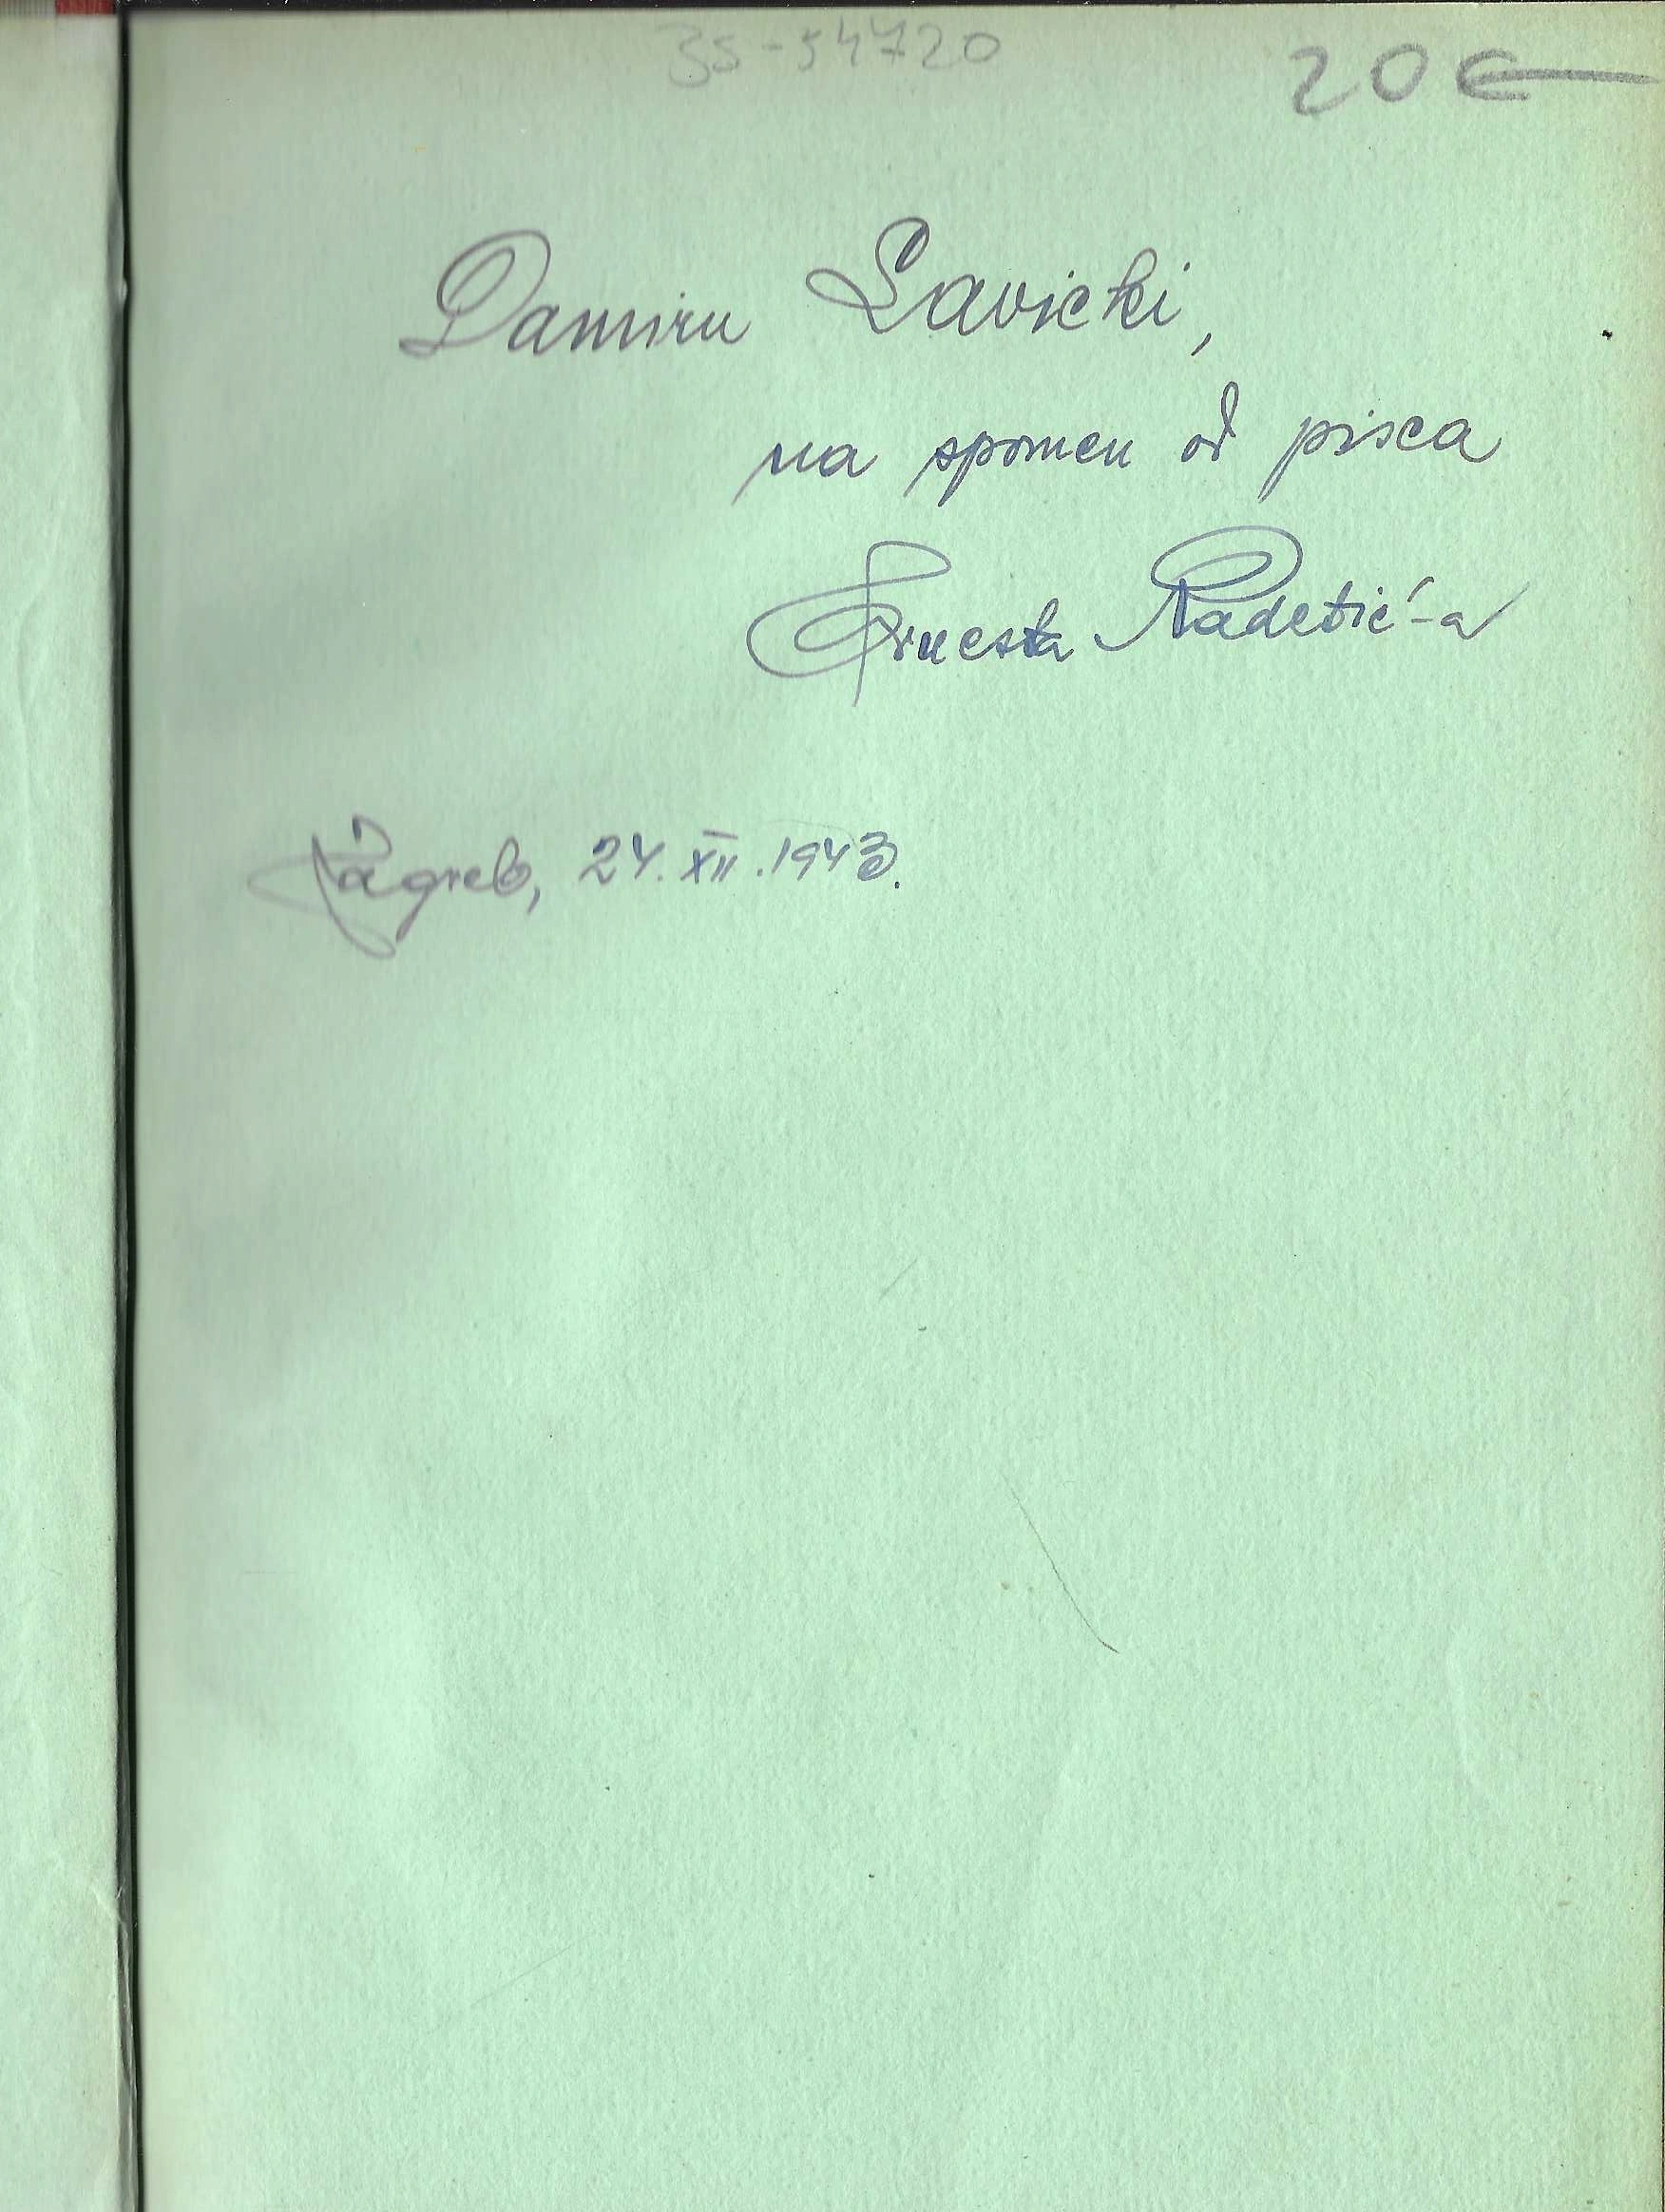 35-54720
20 €
Damiru Lavicki,
na spomen od pisca
Ernesta Radetić-a
Zagreb, 24. XII. 1943.